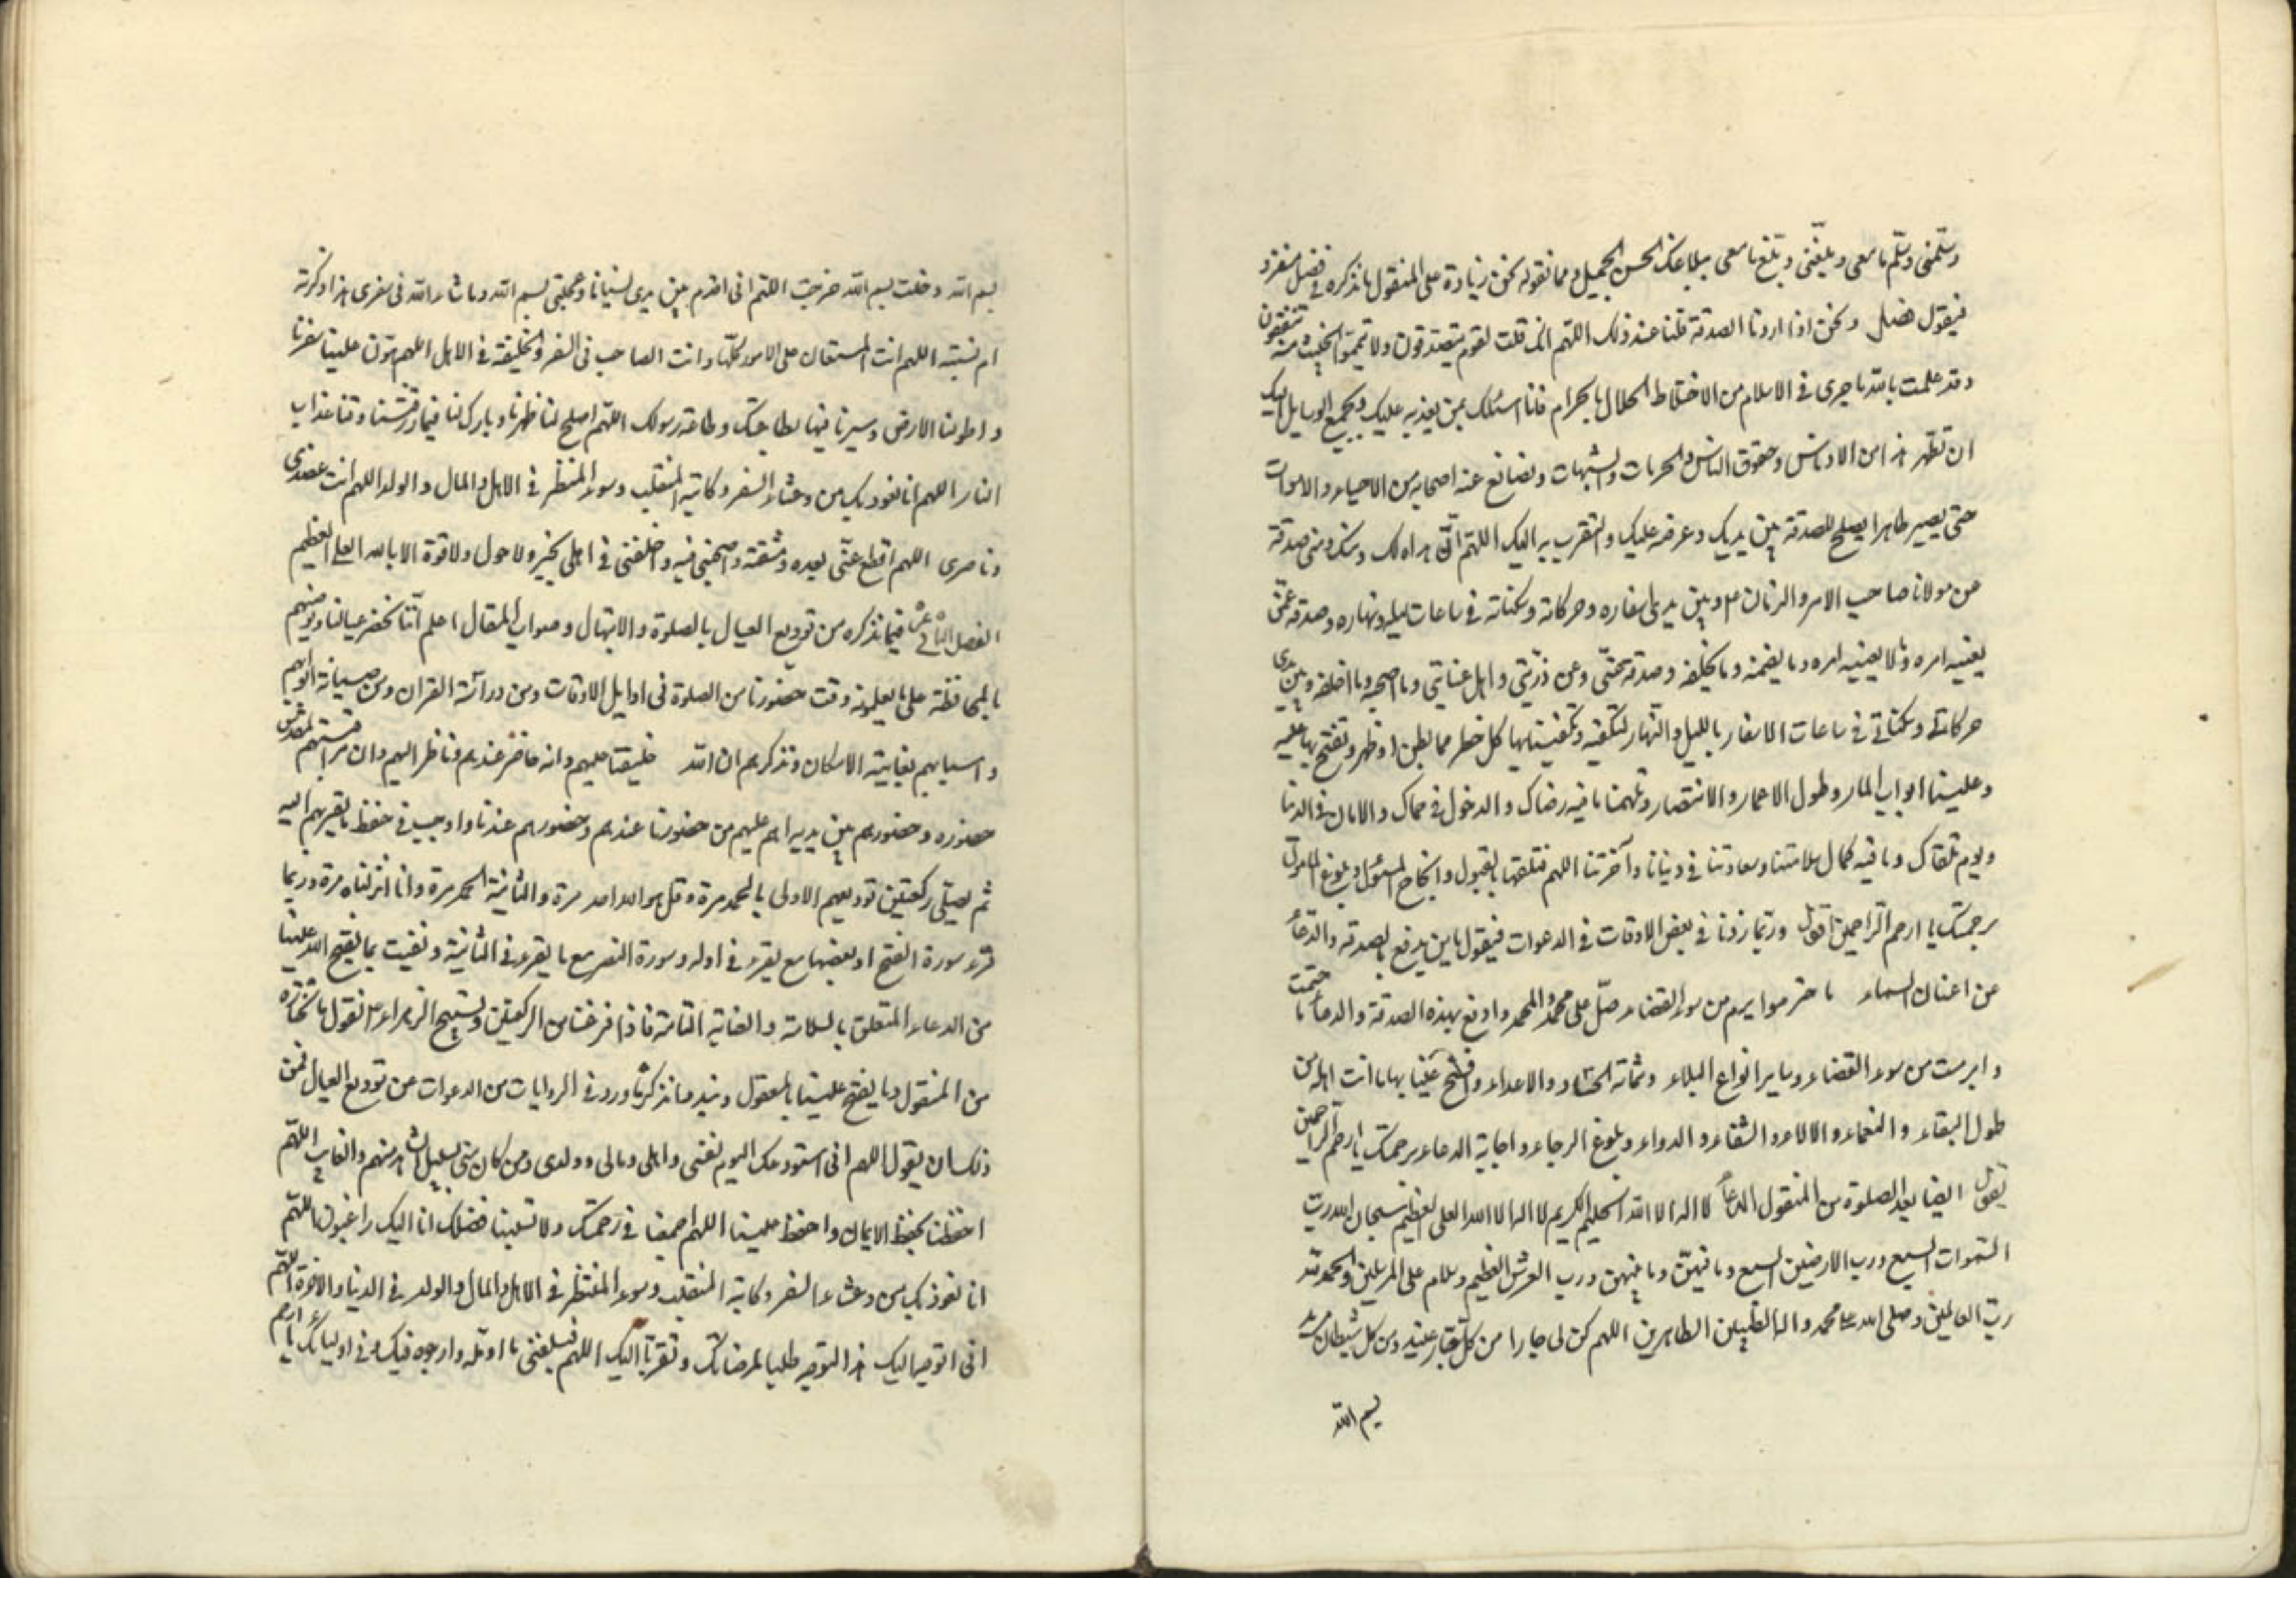 وسلمنى وسلم ما معى وبلغنى وبلغ ما معى ببلاغك الحسن الجميل ومما نقوله نحن زيادة على المنقول ما نذكره فى فصل منفرد
فيقول فصل ونحن اذا اردنا الصدقة قلنا عند ذلك اللهم انك قلت لقوم يتصدقون ولا تيمموا الخبيث منه تنفقون
وقد علمت يا الله ما جرى فى الاسلام من الاختلاط الحلال بالحرام فانا اسئلك بمن يعز عليك وبجميع الوسايل اليك
ان تطهر هذا من الادناس وحقوق الناس والحرمات والشبهات وتصانع عنه اصحابه من الاحياء والاموات
حتى يصير طاهرا يصلح للصدقة بين يديك وعرضه عليك والتقرب به اليك اللهم ان هذا لك ومنك وهى صدقة
عن مولانا صاحب الامر والزمان ع م وبين يدى اسفاره وحركاته وسكناته فى ساعات ليله ونهاره وصدقة عمن
يعنيه امره وما لا يعنيه امره وما يضمنه وما يخلفه وصدقة عنى وعن ذريتى واهل عنايتى وما اصحبه وما اخلفه وبين يدى
حركاتى وسكناتى فى ساعات الاسفار بالليل والنهار لتكفيه وتكفينا بها كل خطر مما بطن او ظهر وتفتح بها عليه
وعلينا ابواب المسار وطول الاعمار والانتصار وتلهمنا ما فيه رضاك والدخول فى حماك والامان فى الدنيا
ويوم نلقاك وما فيه كمال سلامتنا وسعادتنا فى دنيانا وآخرتنا اللهم فتلقها بالقبول وانجاح المسئول وبلوغ المأمول
برحمتك يا ارحم الراحمين اقول وربما زدنا فى بعض الاوقات فى الدعوات فيقول يا من يدفع بالصدقة والدعاء
عن اعنان السماء ما حتم وابرم من سوء القضاء صل على محمد وال محمد وادفع بهذه الصدقة والدعاء ما حتمت
وابرمت من سوء القضاء وساير انواع البلاء وشماتة الحساد والاعداء وافتح علينا بها ما انت اهله من
طول البقاء والنعماء والالاء والشفاء والدواء وبلوغ الرجاء واجابة الدعاء برحمتك يا ارحم الراحمين
يقول ايضا بعد الصلوة من المنقول الدعاء لا اله الا الله الحليم الكريم لا اله الا الله العلى العظيم سبحان الله رب
السموات السبع ورب الارضين السبع وما فيهن وما بينهن ورب العرش العظيم وسلام على المرسلين والحمد لله
رب العالمين وصلى الله على محمد واله الطيبين الطاهرين اللهم كن لى جارا من كل جبار عنيد ومن كل شيطان مريد
بسم الله
بسم الله دخلت بسم الله خرجت اللهم انى اقدم بين يدى نسيانى وعجلتى بسم الله وما شاء الله فى سفرى هذا ذكرته
ام نسيته اللهم انت المستعان على الامور كلها وانت الصاحب فى السفر والخليفة فى الاهل اللهم هون علينا سفرنا
واطو لنا الارض وسيرنا فيها بطاعتك وطاعة رسولك اللهم اصلح لنا ظهرنا وبارك لنا فيما رزقتنا وقنا عذاب
النار اللهم انا نعوذ بك من وعثاء السفر وكآبة المنقلب وسوء المنظر فى الاهل والمال والولد اللهم انت عضدى
وناصرى اللهم اقطع عنى بعده ومشقته واصحبنى فيه واخلفنى فى اهلى بخير ولا حول ولا قوة الا بالله العلى العظيم
الفصل الثانى عشر فيما نذكره من توديع العيال بالصلوة والابتهال وصواب المقال اعلم اننا نحضر عيالنا ونوصيهم
بالمحافظة على ما يعلمونه وقت حضورنا من الصلوة فى اوايل الاوقات ومن دراسة القران ومن صيانة ابوابهم
واسبابهم بغاية الامكان ونذكرهم ان الله خليفتنا عليهم وانه حاضر عندهم وناظر اليهم وان حرمتهم لمقدس
حضوره وحضورهم بين يديه اهم عليهم من حضورنا عندهم وحضورهم عندنا واوجب فى حفظ ما يقربهم اليه
ثم يصلى ركعتين توديعهم الاولى بالحمد مرة وقل هو الله احد مرة والثانية الحمد مرة وانا انزلناه مرة وربما
قرء سورة الفتح او بعضها مع يقرء فى اوله وسورة النصر مع ما يقرء فى الثانية ونقنت بما يفتح الله علينا
من الدعاء المتعلق بالسلامة والعناية التامة فاذا فرغنا من الركعتين وتسبيح الزهراء ع م نقول ما نختاره
من المنقول وما يفتح علينا بالمعقول ونبدء بما نذكر مما ورد فى الروايات من الدعوات عن توديع العيال فمن
ذلك ان يقول اللهم انى استودعك اليوم نفسى واهلى ومالى وولدى ومن كان منى بسبيل الشاهد منهم والغايب اللهم
احفظنا بحفظ الايمان واحفظ علينا اللهم اجمعنا فى رحمتك ولا تسلبنا فضلك انا اليك راغبون اللهم
انا نعوذ بك من وعثاء السفر وكآبة المنقلب وسوء المنظر فى الاهل والمال والولد فى الدنيا والاخرة اللهم
انى اتوجه اليك هذا التوجه طلبا لمرضاتك وتقربا اليك اللهم فبلغنى ما اؤمله وارجوه فيك وفى اوليائك يا ارحم